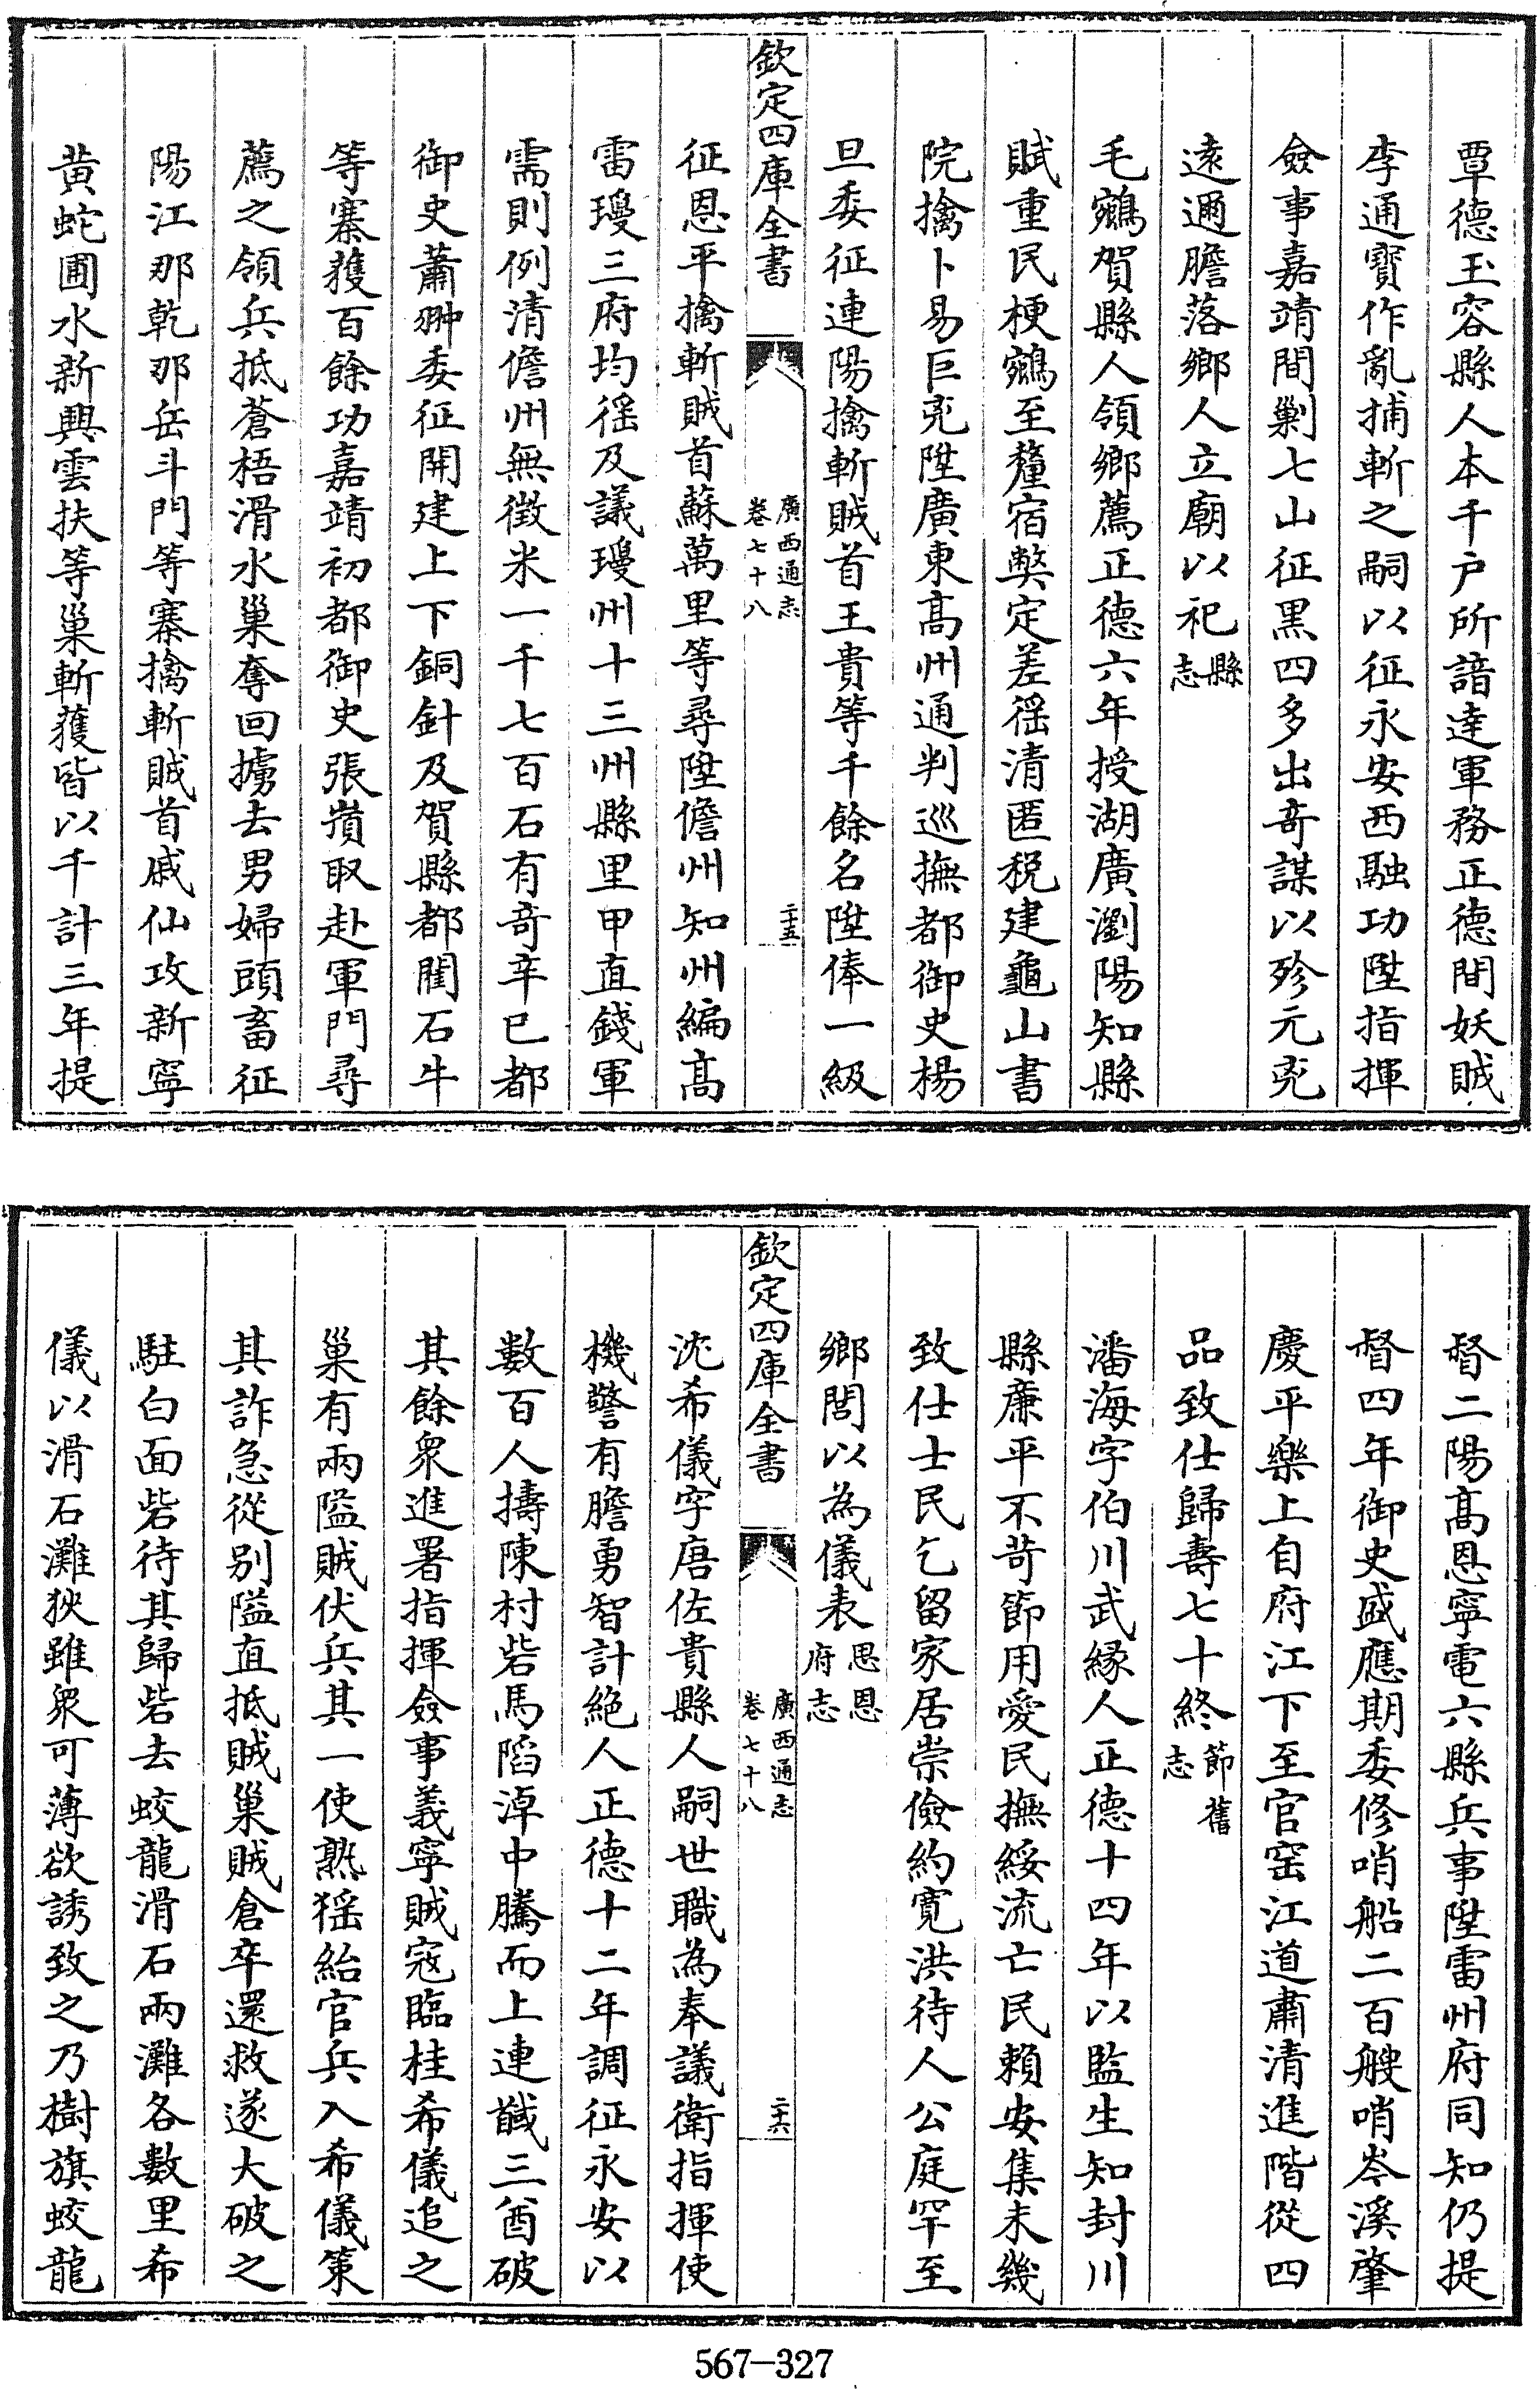 覃德玉容縣人本千戸所諳達軍務正德間妖賊
李通寳作亂捕斬之嗣以征永安西融功陞指揮
僉事嘉靖間剿七山征黒四多出竒謀以殄元兇
遠邇膽落鄉人立廟以祀縣志
毛鵷賀縣人領鄉薦正德六年授湖廣瀏陽知縣
賦重民梗鵷至釐宿弊定差徭清匿税建龜山書
院擒卜易巨兇陞廣東髙州通判巡撫都御史楊
旦委征連陽擒斬賊首王貴等千餘名陞俸一級
欽定四庫全書
廣西通志
卷七十八
二十五
征恩平擒斬賊首蘇萬里等尋陞儋州知州編髙
雷瓊三府均徭及議瓊州十三州縣里甲直錢軍
需則例清儋州無徴米一千七百石有竒辛已都
御史蕭翀委征開建上下銅針及賀縣都閳石牛
等寨獲百餘功嘉靖初都御史張嵿取赴軍門尋
薦之領兵抵蒼梧滑水巢奪回擄去男婦頭畜征
陽江那乾那岳斗門等寨擒斬賊首戚仙攻新寧
黄蛇圃水新興雲扶等巢斬獲皆以千計三年提
督二陽髙恩寧電六縣兵事陞雷州府同知仍提
督四年御史盛應期委修哨船二百艘哨岑溪肇
慶平樂上自府江下至官窑江道肅清進階從四
品致仕歸壽七十終節舊志
潘海字伯川武縁人正德十四年以監生知封川
縣亷平不苛節用愛民撫綏流亡民賴安集未幾
致仕士民乞留家居崇儉約寛洪待人公庭罕至
鄉閭以為儀表思恩府志
欽定四庫全書
廣西通志
卷七十八
二十六
沈希儀字唐佐貴縣人嗣世職為奉議衛指揮使
機警有膽勇智計絶人正德十二年調征永安以
數百人擣陳村砦馬陷淖中騰而上連馘三酋破
其餘衆進署指揮僉事義寧賊宼臨桂希儀追之
巢有兩隘賊伏兵其一使熟猺紿官兵入希儀策
其詐急從别隘直抵賊巢賊倉卒還救遂大破之
駐白面砦待其歸砦去蛟龍滑石兩灘各數里希
儀以滑石灘狹雖衆可薄欲誘致之乃樹旗蛟龍
567-327